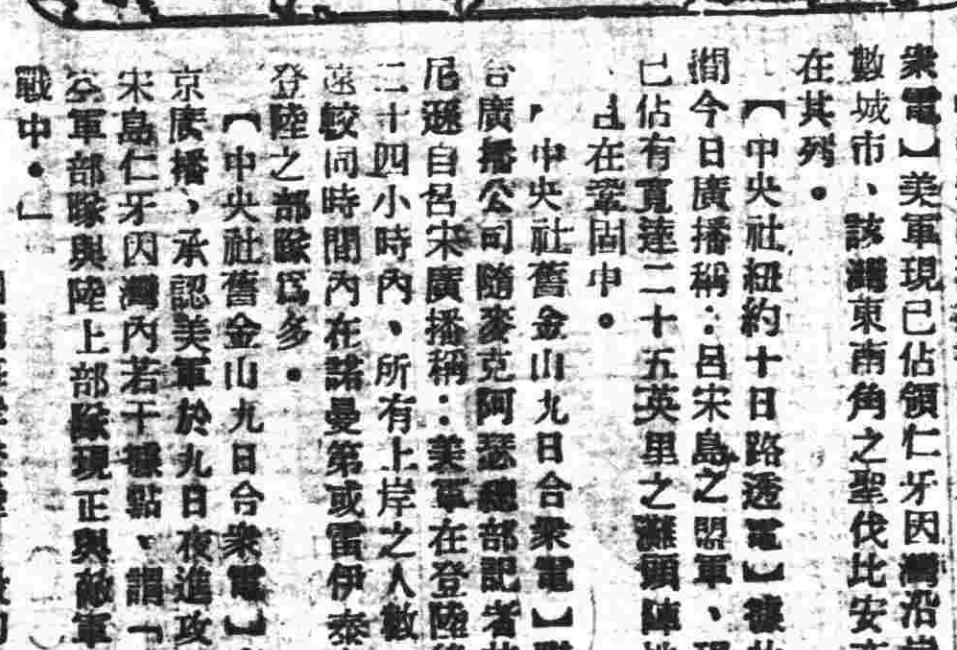 衆電】美軍現已佔領仁牙因灣沿
數城市、該灣東南角之聖伐比安
在其列。
【中央社紐約十日路透電】據
澗今日廣播稱：呂宋島之盟軍、現
已佔有寬達二十五英里之灘頭陣地
在鞏固中。
中央社舊金山九日合衆電】
台廣播公司隨麥克阿瑟總部記者
尼遜自呂宋廣播稱：美軍在登陸後
二十四小時內、所有上岸之人數
遠較同時間內在諾曼第或雷伊泰
登陸之部隊爲多。
【中央社舊金山九日合衆電】
京廣播、承認美軍於九日夜進攻
宋島仁牙因灣內若干據點、謂「
軍部隊與陸上部隊現正與敵軍
戰中。」